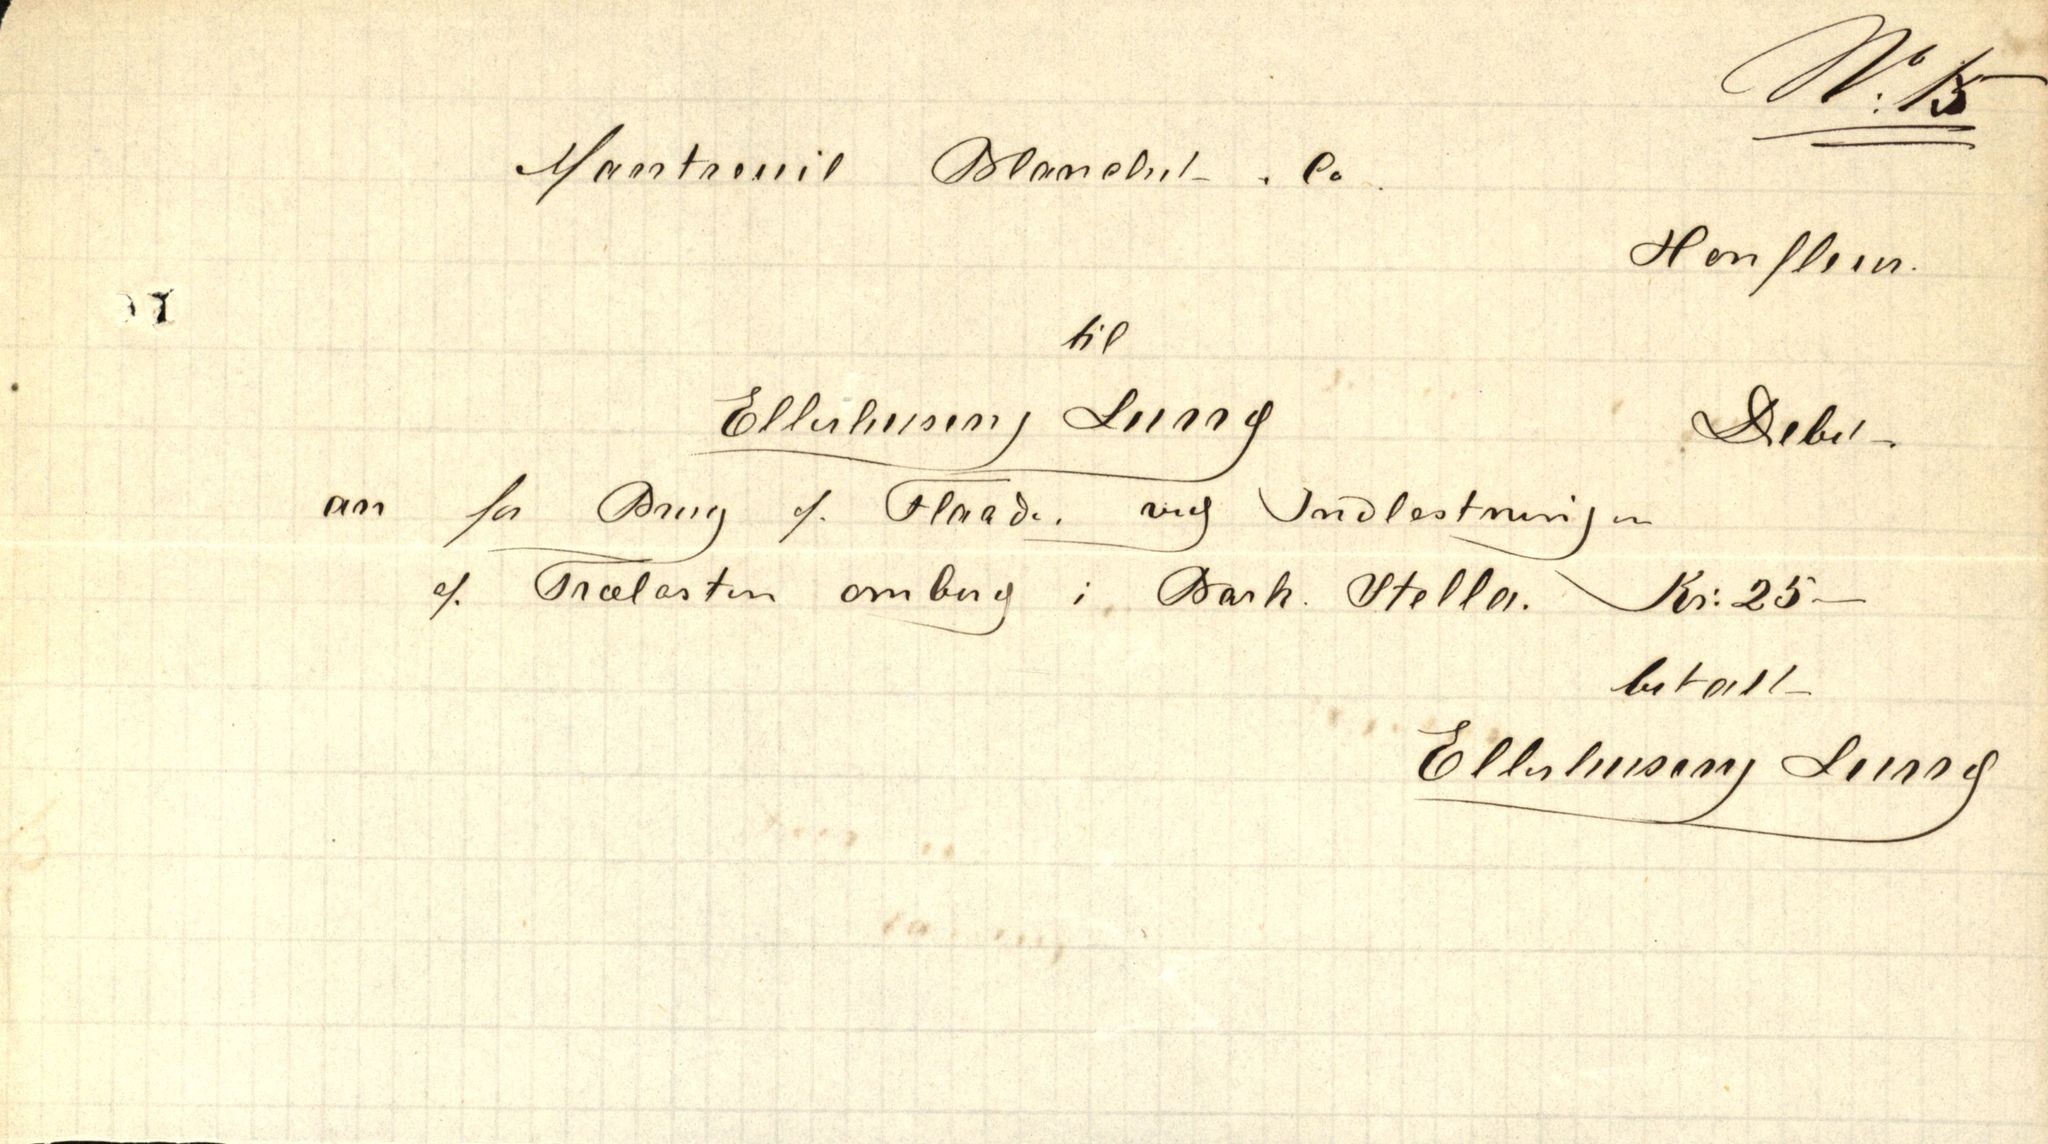 No: 15
Mantreuil Blanchet . Co.
Honfleur.
til
Ellerhuseng Lung
Debet
an for Brug af Flaade ved Indlastningen
af Trælasten ombord i Bark. Stella. Kr: 25
betalt
Ellerhuseng Lung